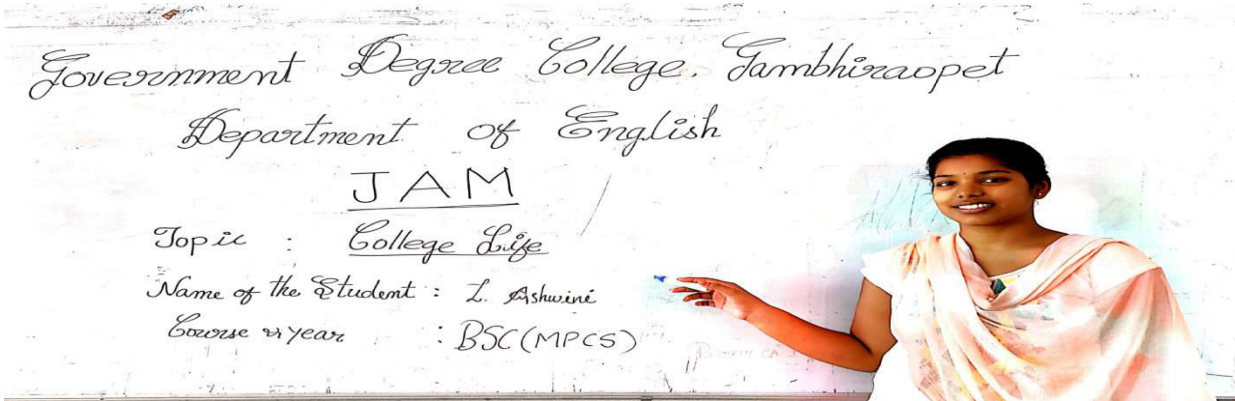 Government Degree College, Gambhiraopet
Department of English
JAM
Topic : College Life
Name of the Student : L. Ashwini
Course & year : BSC (MPCS)